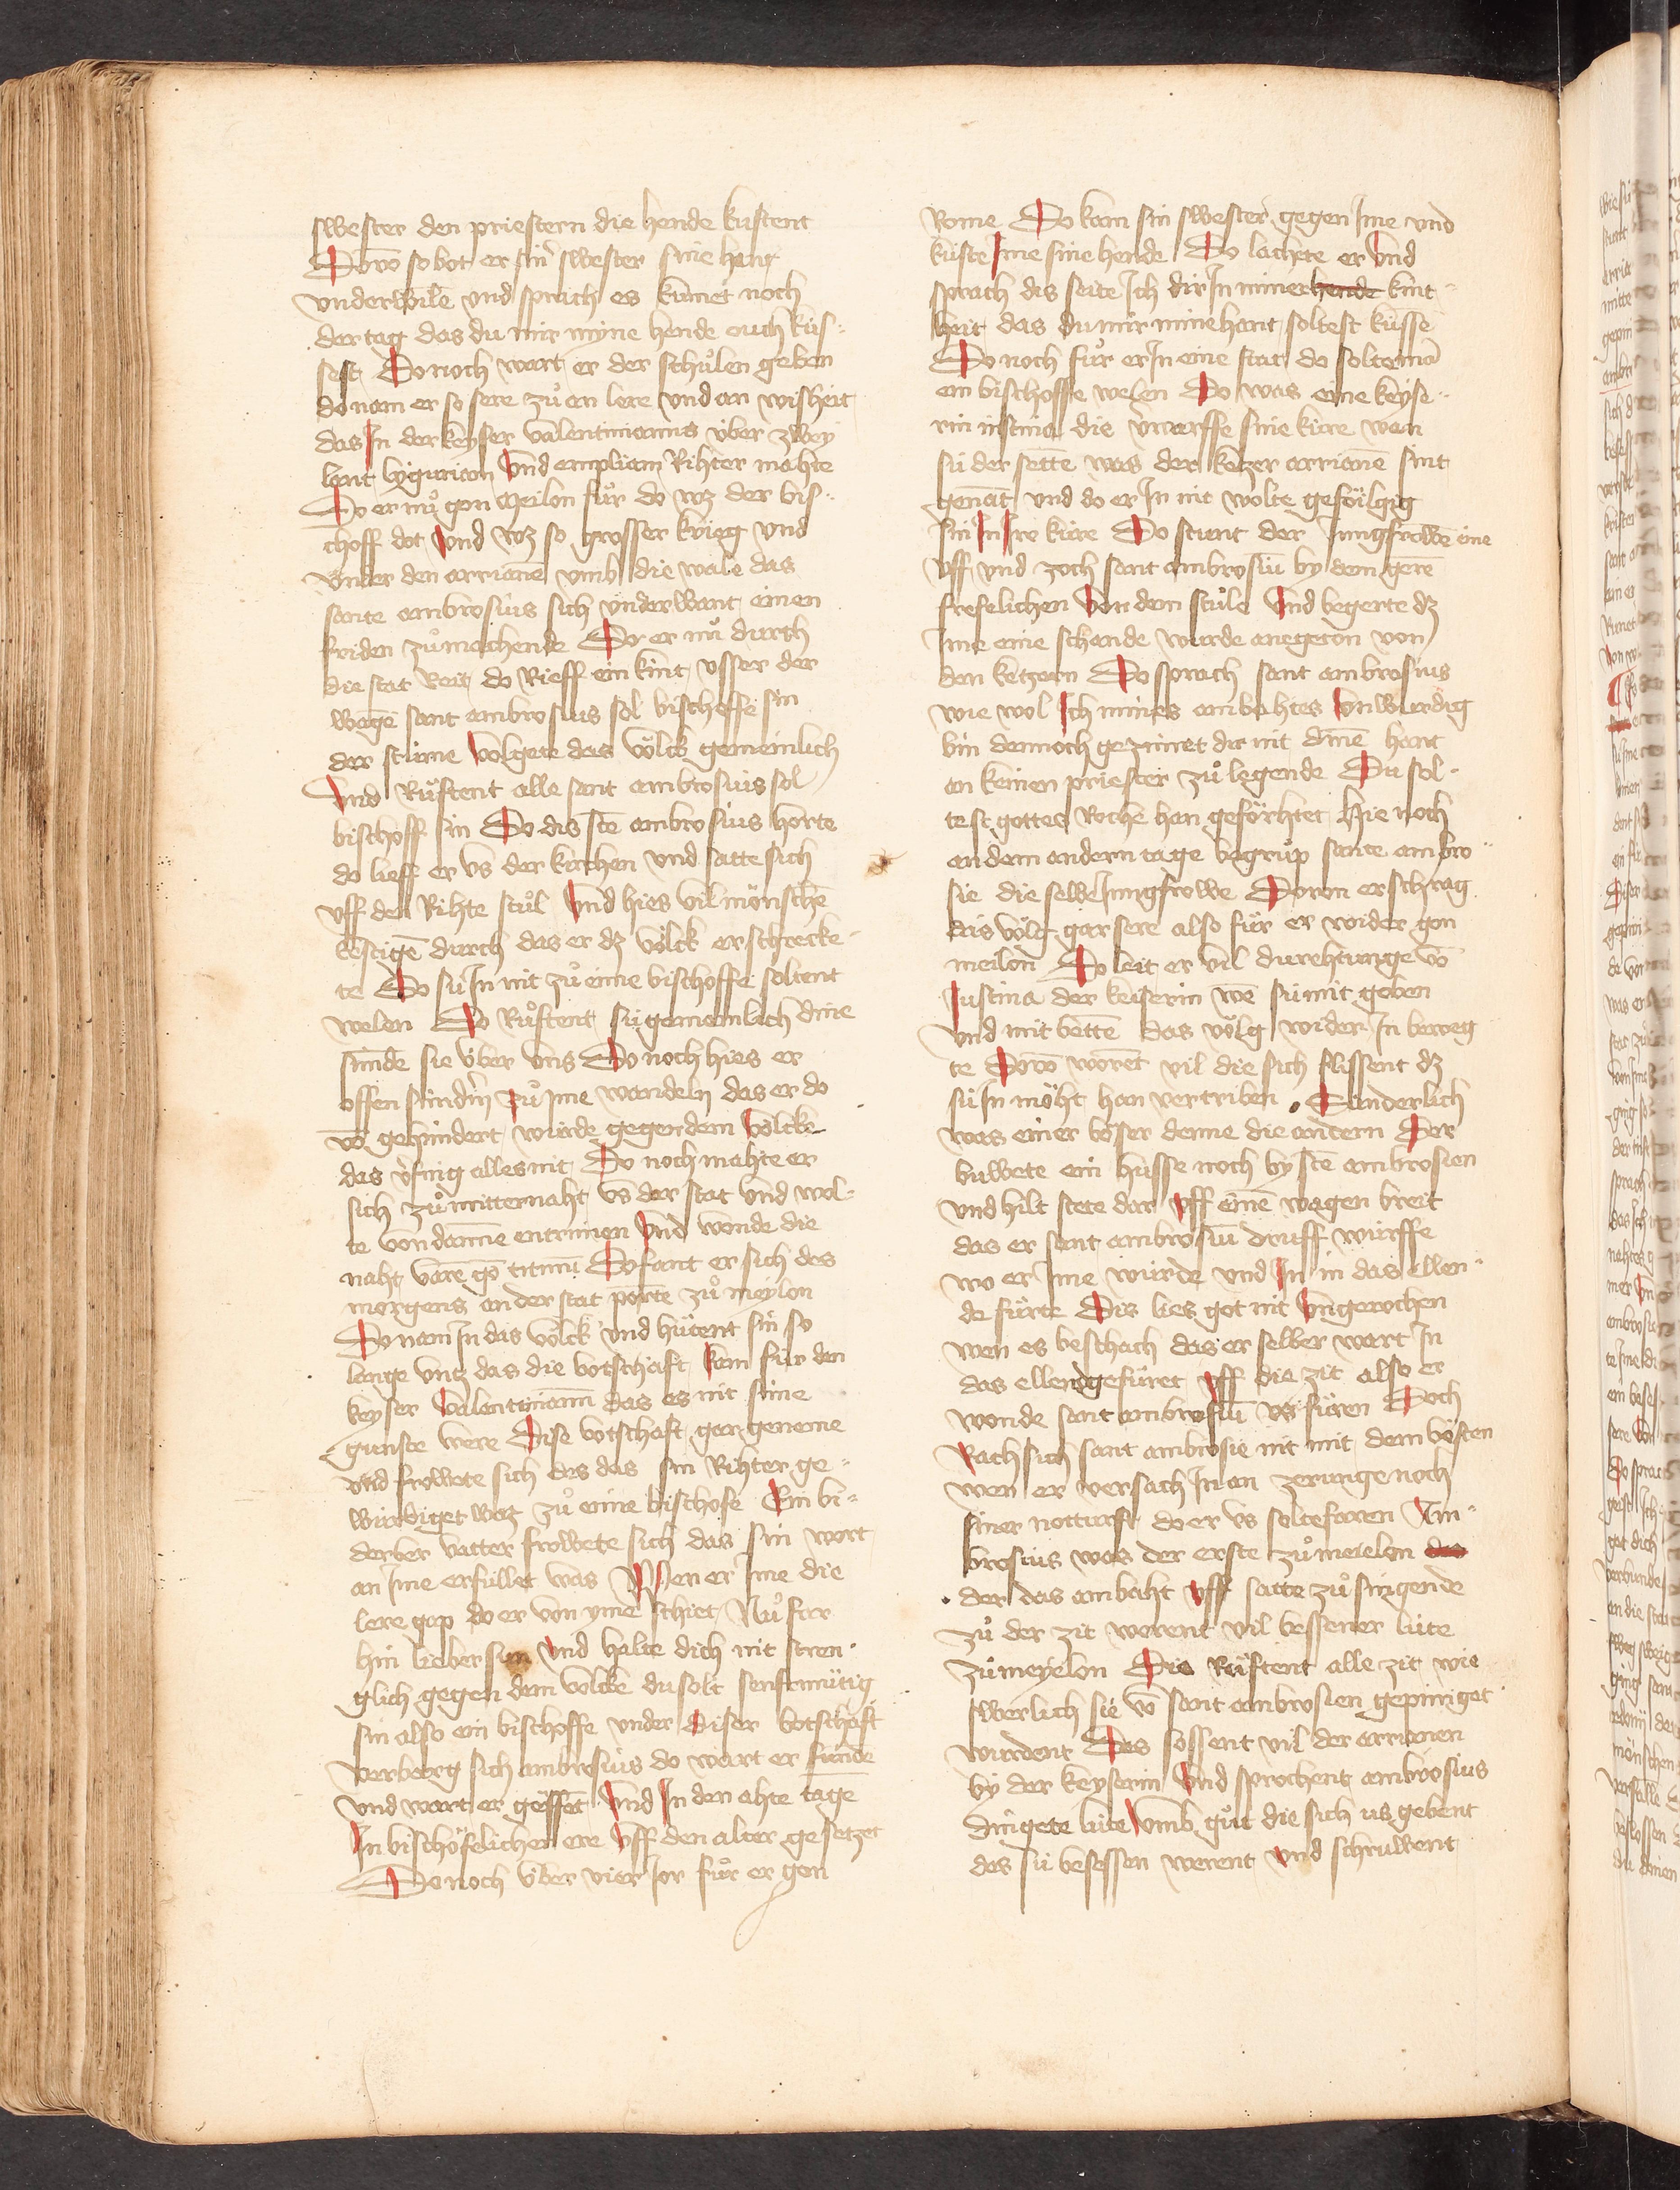 swester den priestern die hende kustent
Dorvō so bot er sin̄ swester sine hant
vnderwilē und sprach es kūmet noch
der tag das du mir myne hende ouch küs¬
sest Do noch wart er der schůlen geben
do nam er so sere zů an lere vnd an wisheit
das In der keyser valentinianus über zwey
lant lyguriam Vnd empliam Rihter mahte
Do er nů gon Meilon fůr do wz der bis¬
choff dot Vnd wz so grosser krieg vnd
vnder den arrianē vmb die wale das
sante ambrosius sich vnderwant einen
friden zůmachende Do er nů durch
die stat Reit do Rieff ein kint vsser der
wagē sant ambrosius sol bischoffe sin
der stime Volgete das völck gemeinlich
Vnd Růftent alle sant ambrosius sol
bischoff sin Do dis stē ambrosius horte
do lieff er vs der kirchen vnd satte sich
vff den Rihte stůl Vnd hies vil mönschē
kestigē durch das er dz völck erschrecke¬
te Do sü In nit zů eime bischoffe soltent
welen Do Růftent sü gemeinlich dine
sünde sie über vns Do noch hies er
offen sünderin̄ zů Ime wandeln das er do
vō gehindert würde gegen dem Völcke
das v̓fing alles nit Do noch mahte er
sich zů mitternaht vs der stat vnd wol¬
te von dannē entrinnen Vnd wonde die
naht vare gō titinū Do fant er sich des
morgens an der stat portē zů meylon
Do nam In das völck vnd hütent sin so
lange vntz das die botschaft kam für den
keyser Valentinianū das es mit sime
gunste were Dise botschaft gar geneme
vnd frowete sich des das sin Rihter ge¬
wirdiget wart zů eime bischofe Ein bi¬
derber vatter frowete sich das sin wort
an Ime erfüllet was Wen er Ime die
lere gap do er von yme schiet Nů far
hin lieber sun Vnd halte dich nit stren¬
glich gegen dem völcke du solt senftmütig
sin also ein bischoffe vnder Diser botschaft
verborg sich ambrosius do wart er fundē
vnd wart er getöffet Vnd In den ahte tage
In bischöfelicher ere Vff den alter gesetzet
Do noch über vier Jor fůr er gen
Rome Do kam sin swester gegen Ime vnd
küste Ime sine hende Do lachete er Vnd
sprach dis seite Ich dir In miner hende kint¬
heit das du mir mine hant soltest küsse
Do noch fůr er In eine stat do solte mā
ein bischoffe welen Do was eine keyse¬
rin iustina die v̓warffe sine küre wen
sü der settē was der ketzer arrianē sint
genāt vnd do er In nit wolte geföilgig
sin In Ire küre Do stunt der Jungfrowē eine
Vff vnd zoch sant ambrosiū by dem gerē
frefelichen Von dem stůle Vnd begerte dz
Ime eine schande würde angeton von
den ketzern Do sprach sant ambrosius
wie wol Ich mines ambahtes Vnwürdig
bin dennoch gezimet dir nit dinē hant
an keinen priester zů legende Du sol¬
test gottes Rochē han geförchtet Hie noch
an dem andern tage begrůp sante ambro¬
sie die selbe Jungfrowe Doron erschrag
das völg gar sere also für er wider gon
meilon Do leit er vil durehtunge vō
Justina der keiserin wē sü mit geben
vnd mit bettē das völg wider In beweg
te Dovō worēt vil die sich flissent dz
sü In möht han vertriben Sünderlich
was einer böser denne die andern Der
buwete ein husse noch by stē ambrosien
vnd hilt stete dar Vff einē wagen breit
das er sant ambrosiū druff würffe
wo er Ime würde vnd In in das ellen¬
de fürte Dis lies got nit Vngerochen
wen es beschach das er selber wart In
das ellend gefüret Vff die zit also er
wonde sant ambrosiū vs füren Doch
Rach sich sant ambrosie nit mit dem bösten
wen er versach In an zerunge noch
siner notturft do er vs solte faren Am¬
brosius was der erste zů meielon das
der das ambaht Vff satte zů singende
zů der zit werent vil bessener lüte
zů meyelon Die Růftent alle zit wie
swerlich sie vō sant ambrosien gepiniget
wurdent Des solsent vil der arrianen
by der keyserin Vnd sprochent ambrosius
dingete lüte Vmb gůt die sich us gebent
das sü besessen werent vnd schruwent